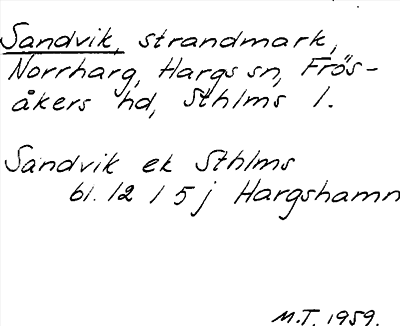 Sandvik, strandmark,
Norrharg, Hargs sn, Frös-
åkers hd, Sthlms l.
Sandvik ek Sthlms
bl. 12 I 5 j Hargshamn
M.T. 1959.